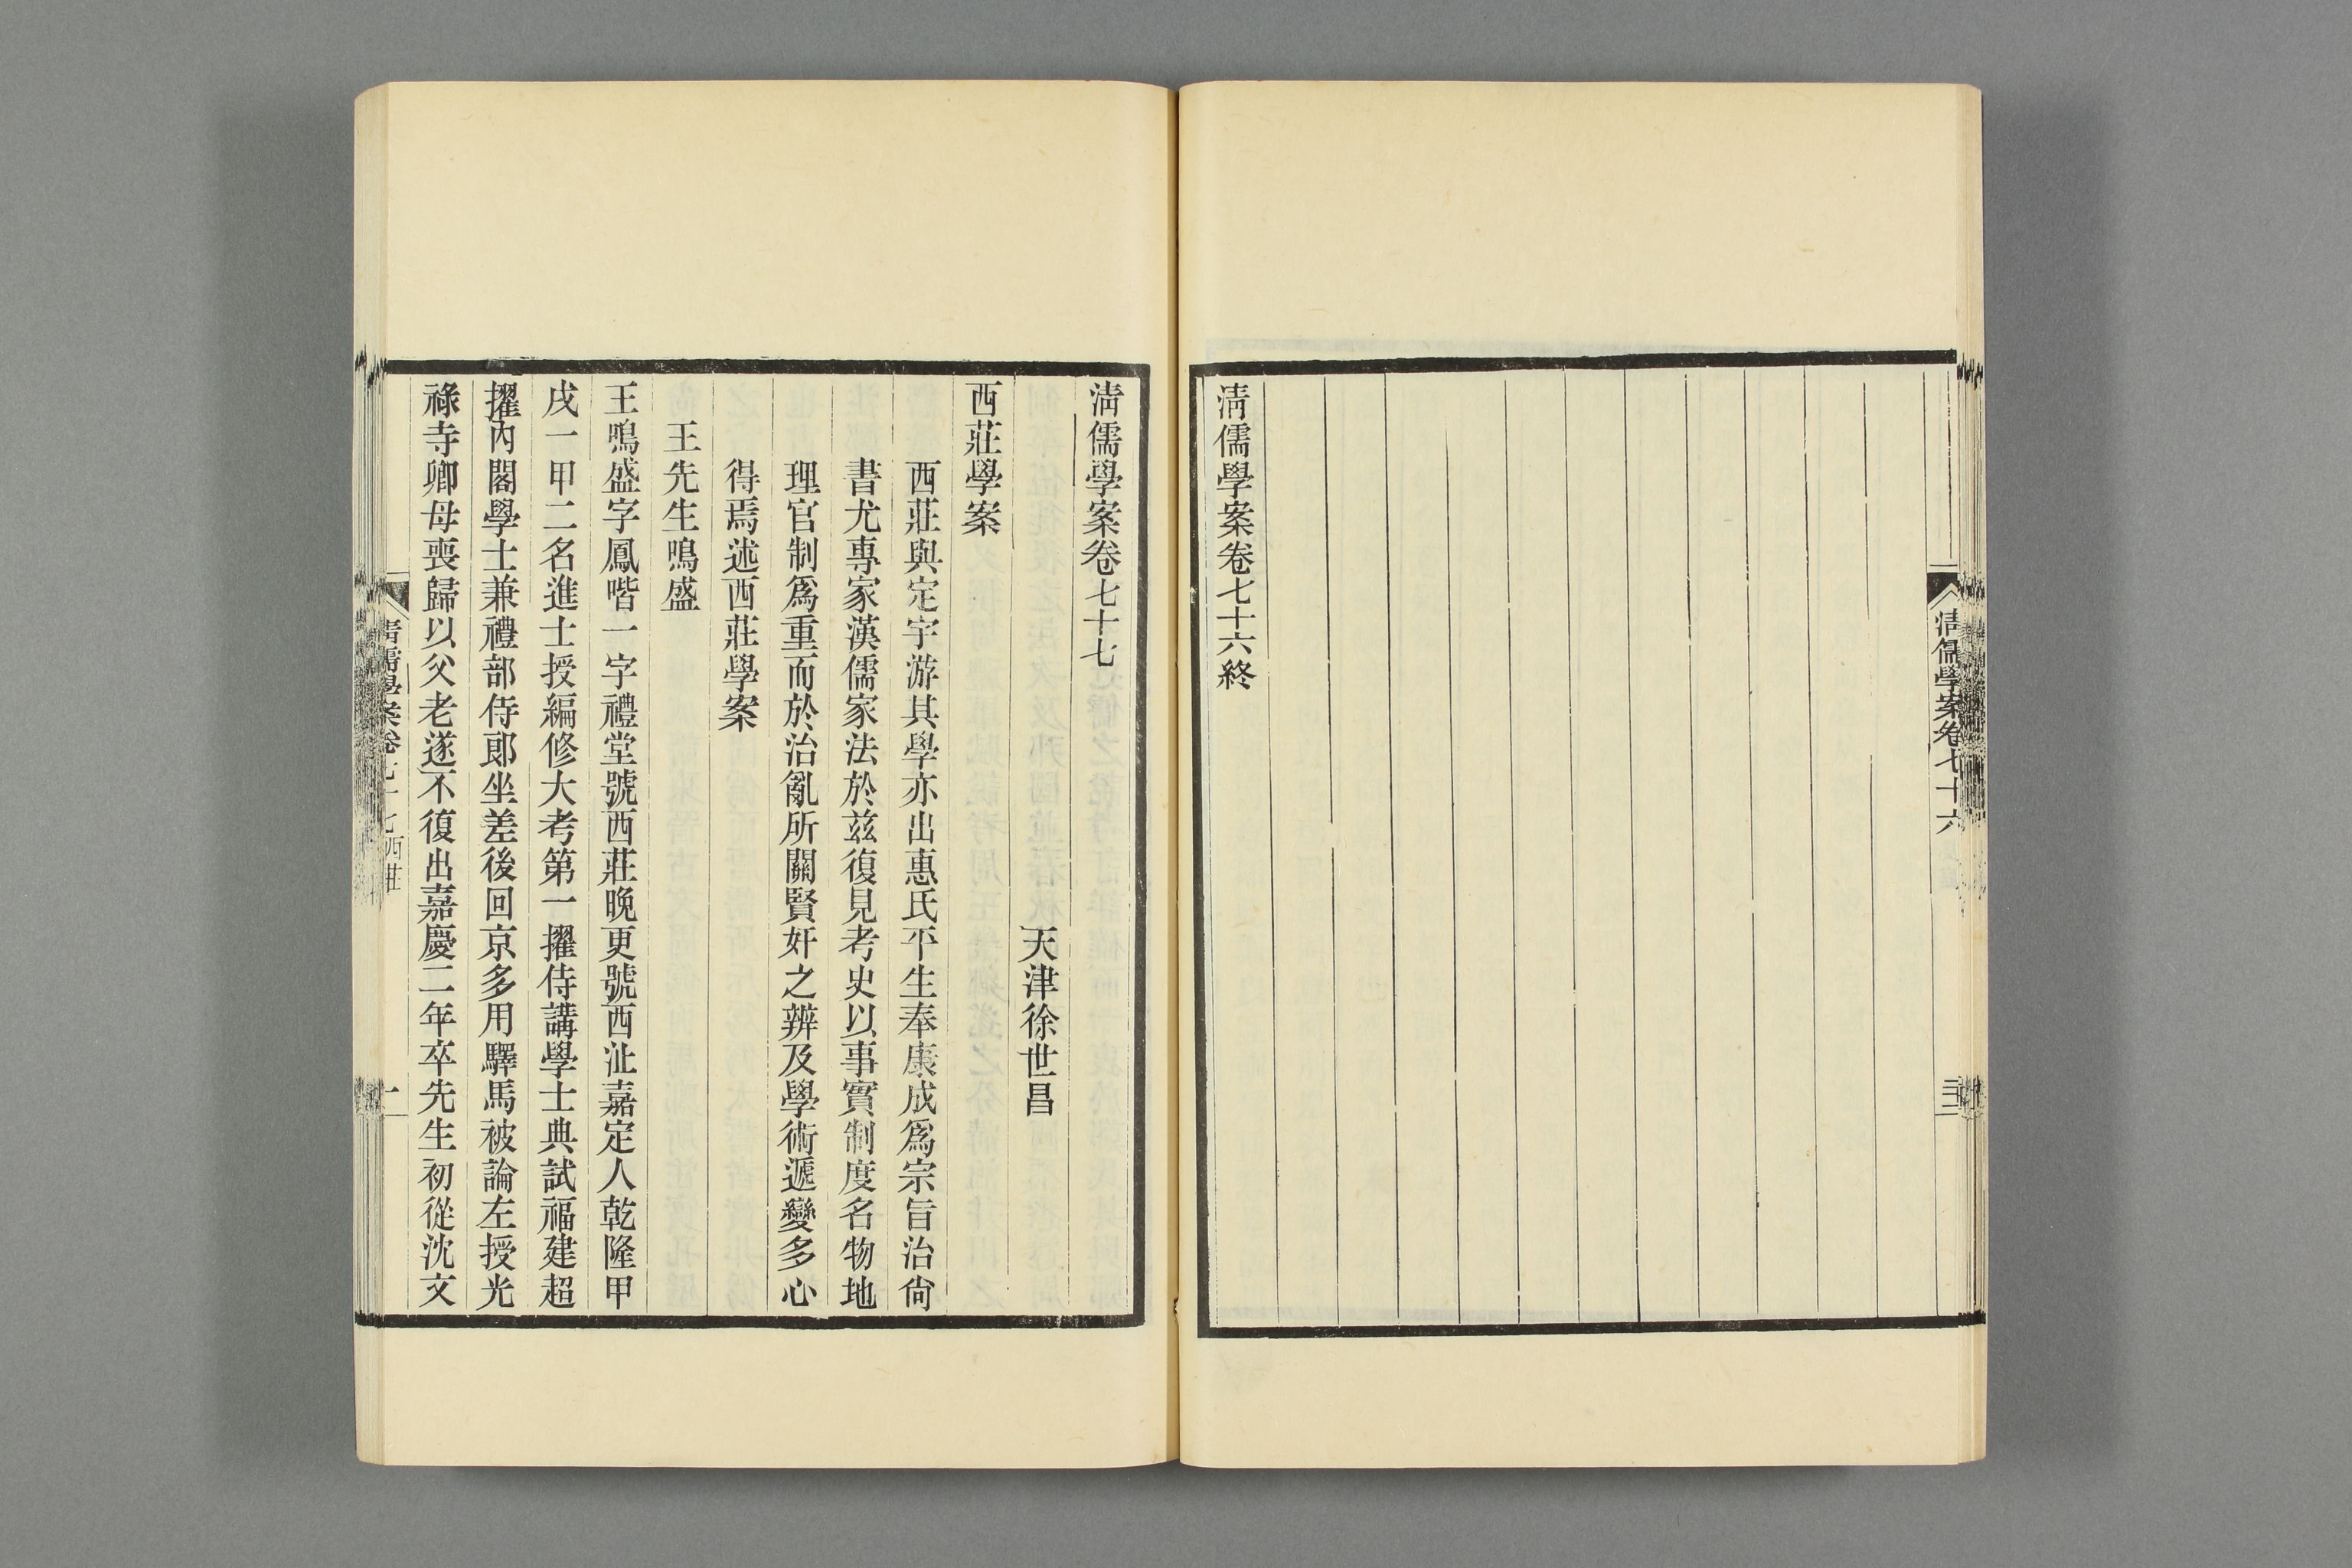 清儒學案卷七十六
清儒學案卷七十六終
清儒學案卷七十七
天津徐世昌
西莊學案
西莊與定宇游其學亦出惠氏平生奉康成爲宗旨治尙
書尤專家漢儒家法於兹復見考史以事實制度名物地
理官制爲重而於治亂所關賢奸之辨及學術遞變多心
得焉述西莊學案
王先生鳴盛
王鳴盛字鳳喈一字禮堂號西莊晚更號西沚嘉定人乾隆甲
戌一甲二名進士授編修大考第一擢侍講學士典試福建超
擢內閣學士兼禮部侍郞坐差後回京多用驛馬被論左授光
祿寺卿母喪歸以父老遂不復出嘉慶二年卒先生初從沈文
清儒學案卷七十七 西莊
一